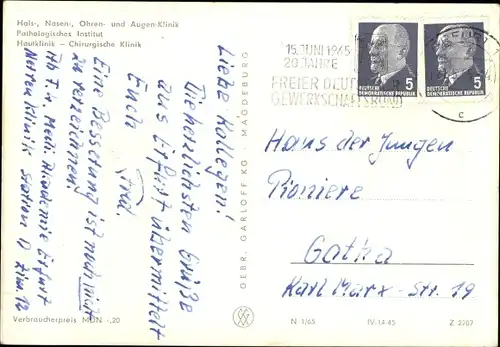 Hals-, Nasen-, Ohren- und Augen-Klinik
Pathologisches Institut
Hautklinik – Chirurgische Klinik
Liebe Kollegen!
Die herzlichsten Grüße
aus Erfurt übermittelt
Euch
Eine Besserung ist noch nicht
zu verzeichnen!
Med. Akademie Erfurt
Nerven Klinik Station D Zim. 12
Verbraucherpreis MDN -,20
GEBR. GARLOFF KG · MAGDEBURG
15. JUNI 1965
20 JAHRE
FREIER DEUT
GEWERKSCHAFTSBUND
c
DEUTSCHE
DEMOKRATISCHE REPUBLIK
5
DEUTSCHE
DEMOKRATISCHE REPUBLIK
5
Haus der Jungen
Pioniere
Gotha
Karl-Marx-Str. 19
N 1/65
IV-14-45
Z 2207